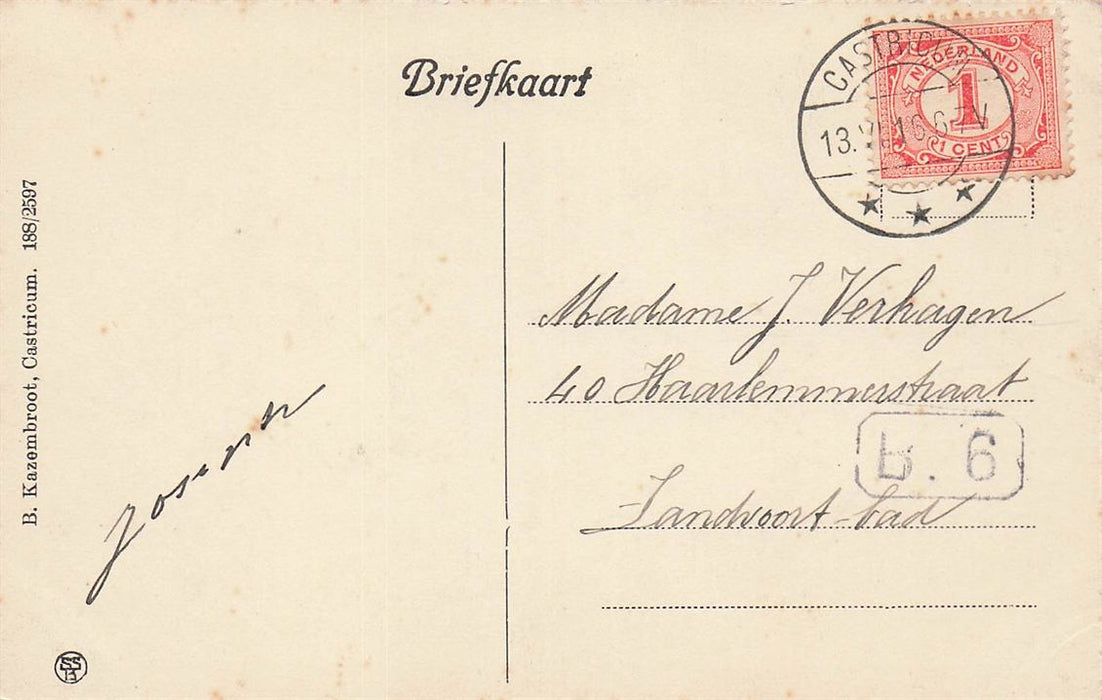 Briefkaart
CASTRICUM
13. 16 6-7V
NEDERLAND
1
1 CENT
B. Kazembroot, Castricum. 188/2597
Madame J. Verhagen
40 Haarlemmerstraat
B. 6
Zandvoort-bad
SS
13